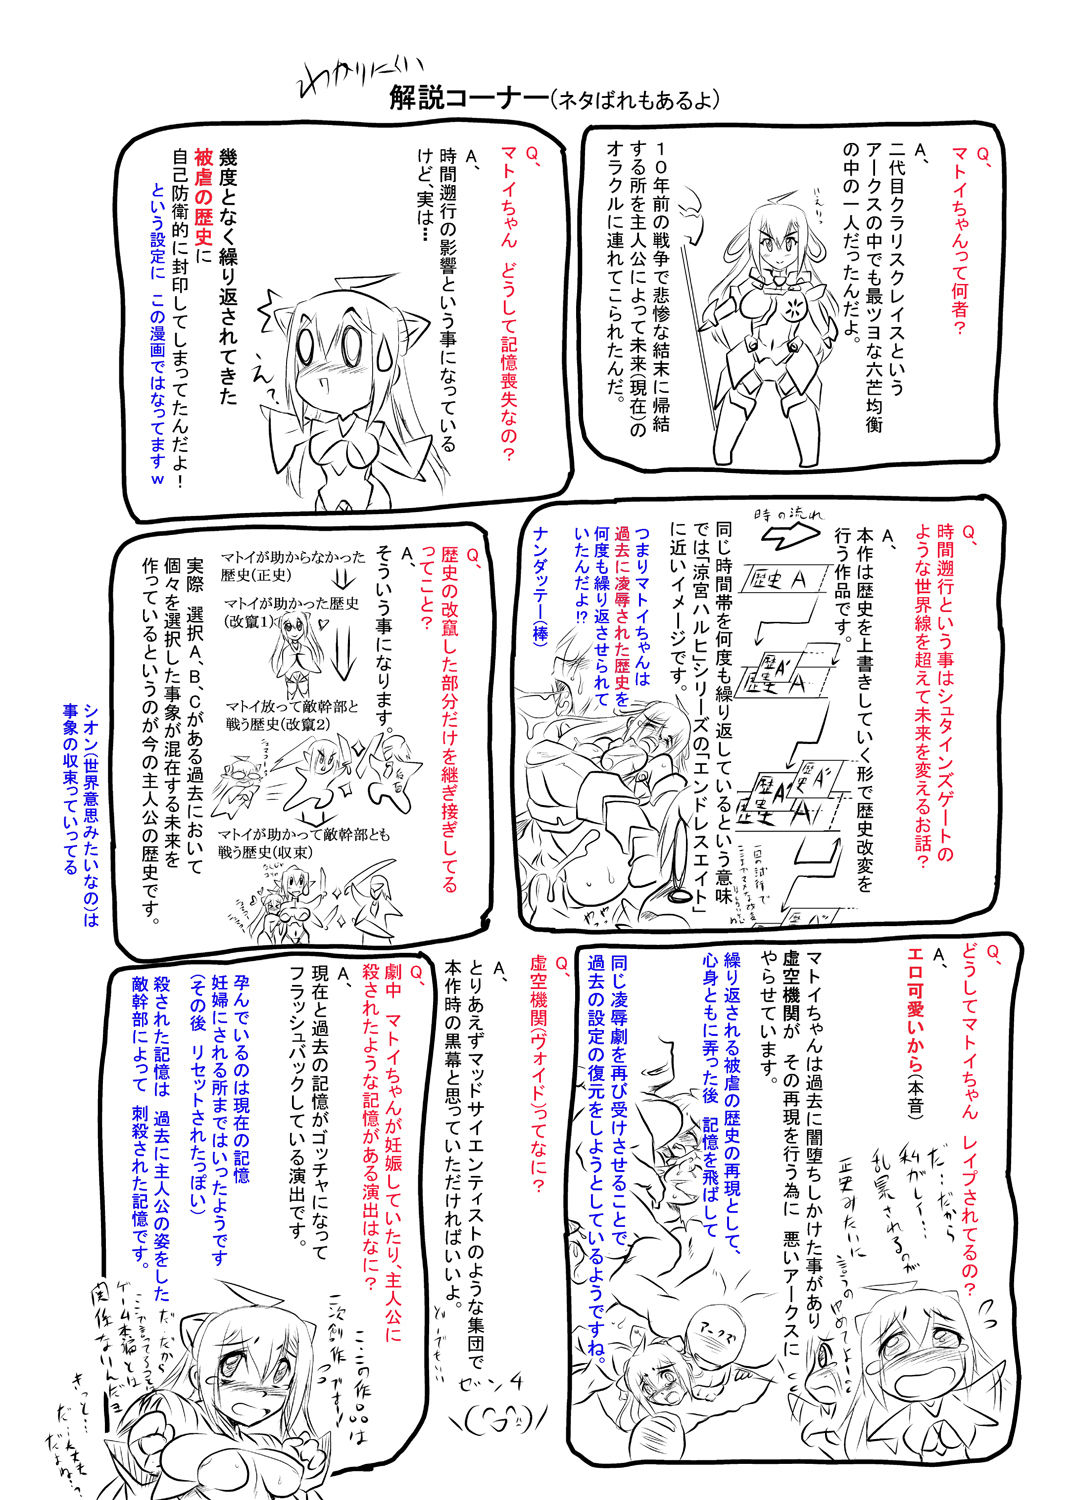 わかりにくい
解説コーナー(ネタばれもあるよ)
Q、
マトイちゃんって何者？
A、
二代目クラリスクレイスという
アークスの中でも最ツヨな六芒均衡
の中の一人だったんだよ。
10年前の戦争で悲惨な結末に帰結
する所を主人公によって未来(現在)の
オラクルに連れてこられたんだ。
Q、
マトイちゃん　どうして記憶喪失なの？
A、
時間遡行の影響という事になっている
けど、実は…
幾度となく繰り返されてきた
被虐の歴史に
自己防衛的に封印してしまってたんだよ！
という設定に　この漫画ではなってますｗ
えっ
Q、
時間遡行という事はシュタインズゲートの
ような世界線を超えて未来を変えるお話？
A、
本作は歴史を上書きしていく形で歴史改変を
行う作品です。
時の流れ
歴史 A
歴史 A'
歴史 A
歴史 A"
歴史 A'
歴史 A
同じ時間帯を何度も繰り返しているという意味
では「涼宮ハルヒシリーズの「エンドレスエイト」
に近いイメージです。
つまりマトイちゃんは
過去に凌辱された歴史を
何度も繰り返させられて
いたんだよ!?
ナンダッテー(棒)
Q、
歴史の改竄した部分だけを継ぎ接ぎしてる
ってこと？
A、
そういう事になります。
マトイが助からなかった
歴史(正史)
マトイが助かった歴史
(改竄1)
マトイ放って敵幹部と
戦う歴史(改竄2)
マトイが助かって敵幹部とも
戦う歴史(収束)
実際　選択A、B、Cがある過去において
個々を選択した事象が混在する未来を
作っているというのが今の主人公の歴史です。
シオン(世界意思みたいなの)は
事象の収束っていってる
Q、
どうしてマトイちゃん　レイプされてるの？
A、
エロ可愛いから(本音)
マトイちゃんは過去に闇堕ちしかけた事があり
虚空機関が　その再現を行う為に　悪いアークスに
やらせています。
繰り返される被虐の歴史の再現として、
心身ともに弄った後　記憶を飛ばして
同じ凌辱劇を再び受けさせることで、
過去の設定の復元をしようとしているようですね。
だ…だから
私がレイ…
乱暴されるのが
正史みたいに
言うのやめてよー
アークス
Q、
虚空機関(ヴォイド)ってなに？
A、
とりあえずマッドサイエンティストのような集団で
本作時の黒幕と思っていただければいいよ。
Q、
劇中　マトイちゃんが妊娠していたり、主人公に
殺されたような記憶がある演出はなに？
A、
現在と過去の記憶がゴッチャになって
フラッシュバックしている演出です。
孕んでいるのは現在の記憶
妊婦にされる所まではいったようです
(その後　リセットされたっぽい)
殺された記憶は　過去に主人公の姿をした
敵幹部によって　刺殺された記憶です。
ここの作品は
二次創作ですー！
だ…だから
ここで言ってることは
ゲーム本編とは
関係ないんだよ
きっと…
だ…大丈夫
だよね…？